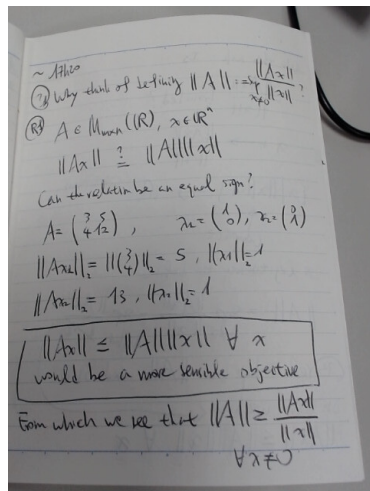 ~ 17h20
Q: Why think of defining ||A|| := sup_{x≠0} ||Ax||/||x|| ?
R: A ∈ M_{m×n}(ℝ), x ∈ ℝⁿ
||Ax|| ≟ ||A|| ||x||
Can the relation be an equal sign?
A = (3 5; 4 12), x₁ = (1; 0), x₂ = (0; 1)
||Ax₁||₂ = ||(3; 4)||₂ = 5, ||x₁||₂ = 1
||Ax₂||₂ = 13, ||x₂||₂ = 1
||Ax|| ≤ ||A|| ||x|| ∀ x
would be a more sensible objective
From which we see that ||A|| ≥ ||Ax||/||x||
∀ x ≠ 0